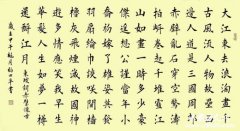 大江東去浪淘盡千
古風流人物故壘西
邊人道是三國周郎
赤壁亂石穿空驚濤
拍岸捲起千堆雪江
山如畫一時多少豪
傑遙想公瑾當年小
喬初嫁了雄姿英發
羽扇綸巾談笑間檣
櫓灰飛煙滅故國神
遊多情應笑我早生
華髮人生如夢一樽
還酹江月 東坡詞赤壁懷古
歲在甲午年 月 書